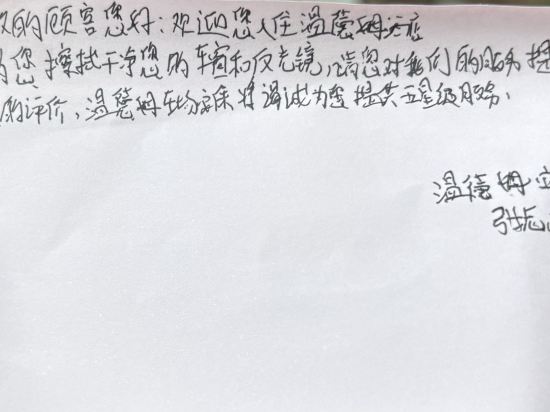 的顾客您好：欢迎您入住温德姆酒店
您擦拭干净您的车窗和反光镜，请您对我们的服务提
的评价，温德姆 将竭诚为您提供五星级服务。
温德姆
张